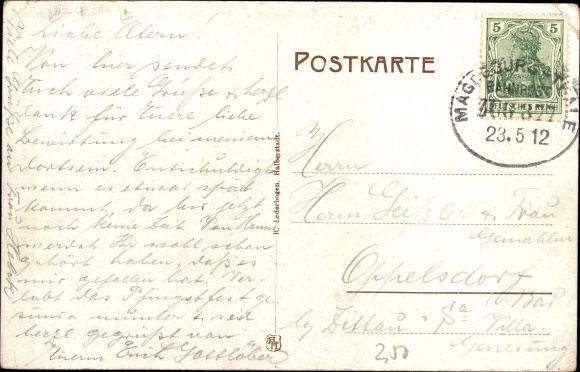 Liebe Eltern!
Von hier sendet
Euch viele Grüße & herzl
dank für Euere liebe
Bewirtung bei meinem
dortsein. Entschuldigt
wenn es etwas spät
kommt, da bis jetzt
noch keine Zeit. Von
werdet Ihr wohl schon
gehört haben, daß es
mir gefallen hat. Ver
lebt das Pfingstfest ge
sund & munter & seid
herzl. gegrüßt von
Euerm Erich Gottlöber
POSTKARTE
5 5
DEUTSCHES REICH
MAGDEBURG
BAHNPOST
ZUG
23.5 12
R. Lederbogen, Halberstadt.
Herrn
Herrn & Frau
Gemahlin
Oppelsdorf
Bad
bg Zittau i/Sa Villa
Genesung
2,50